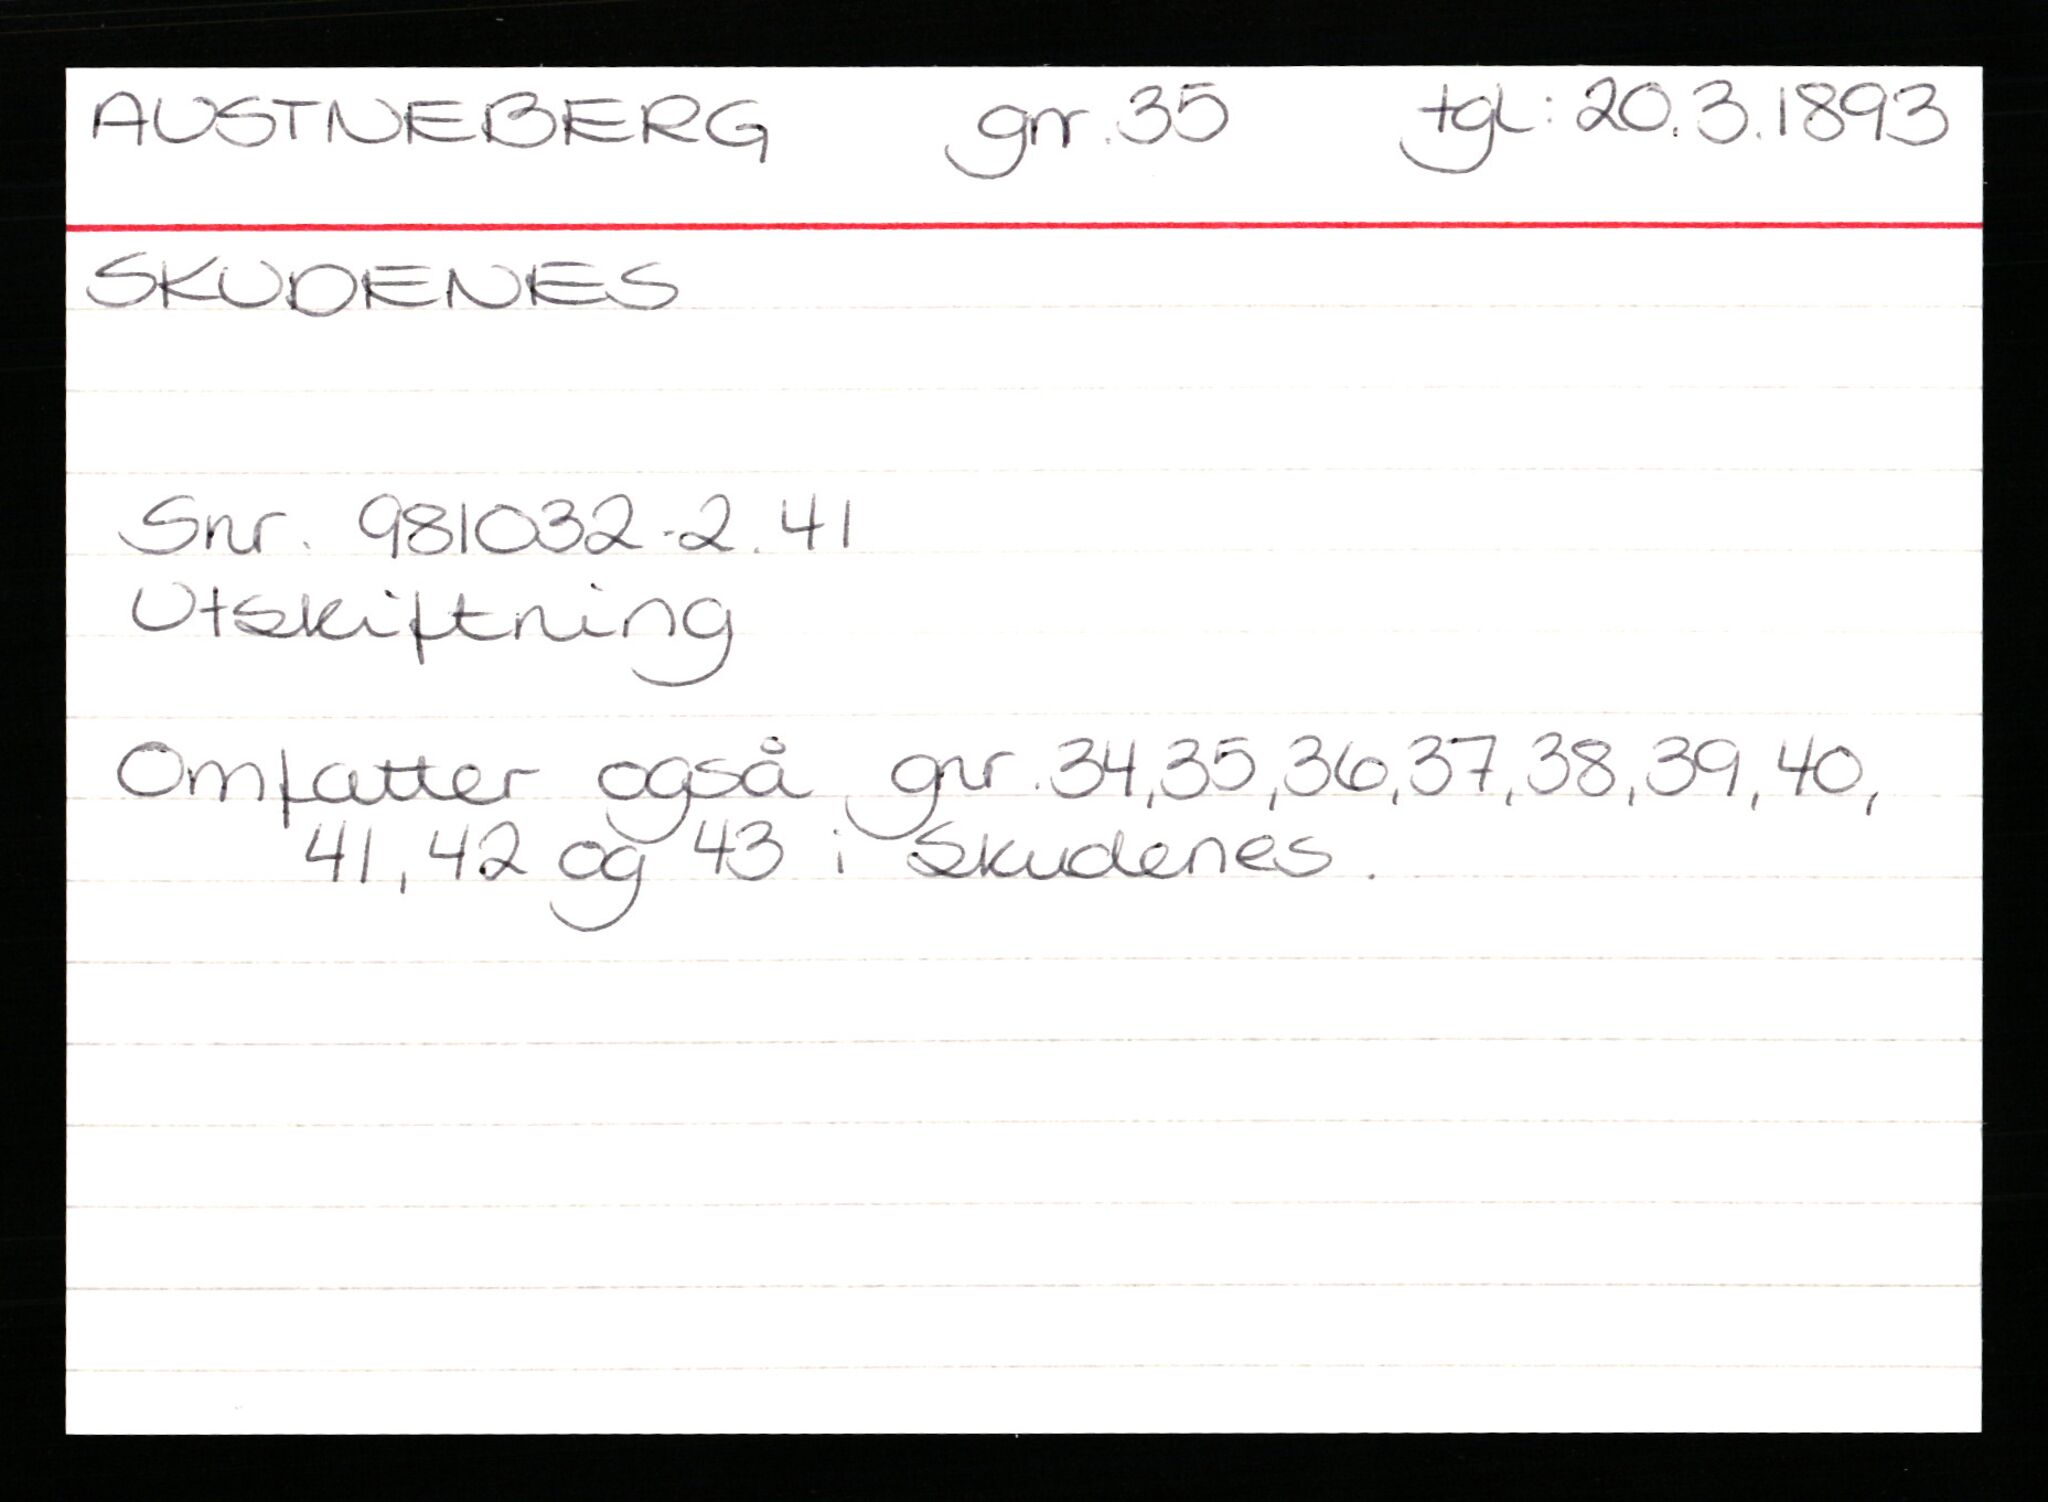 AUSTNEBERG gnr.35 tgl: 20.3.1893
SKUDENES
Snr. 981032-2.41
Utskiftning
Omfatter også gnr.34,35,36,37,38,39,40,
41,42 og 43 i Skudenes.